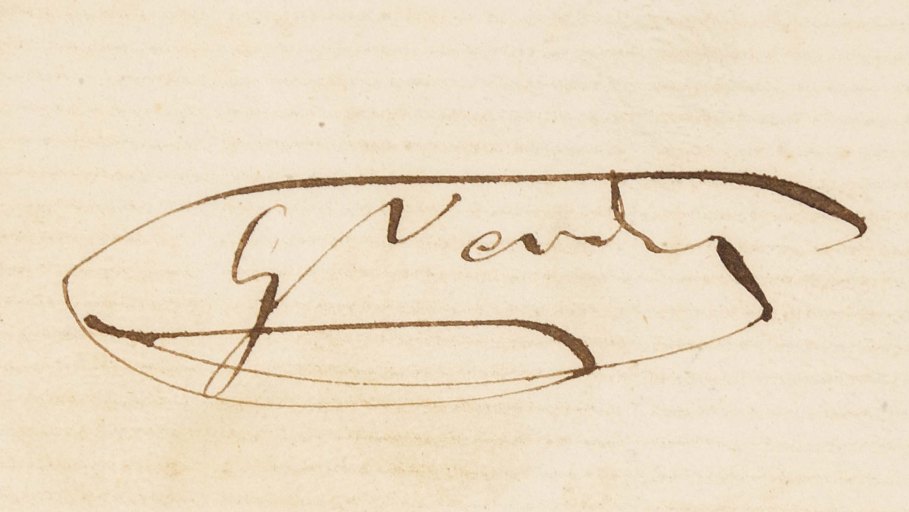 G Verdi